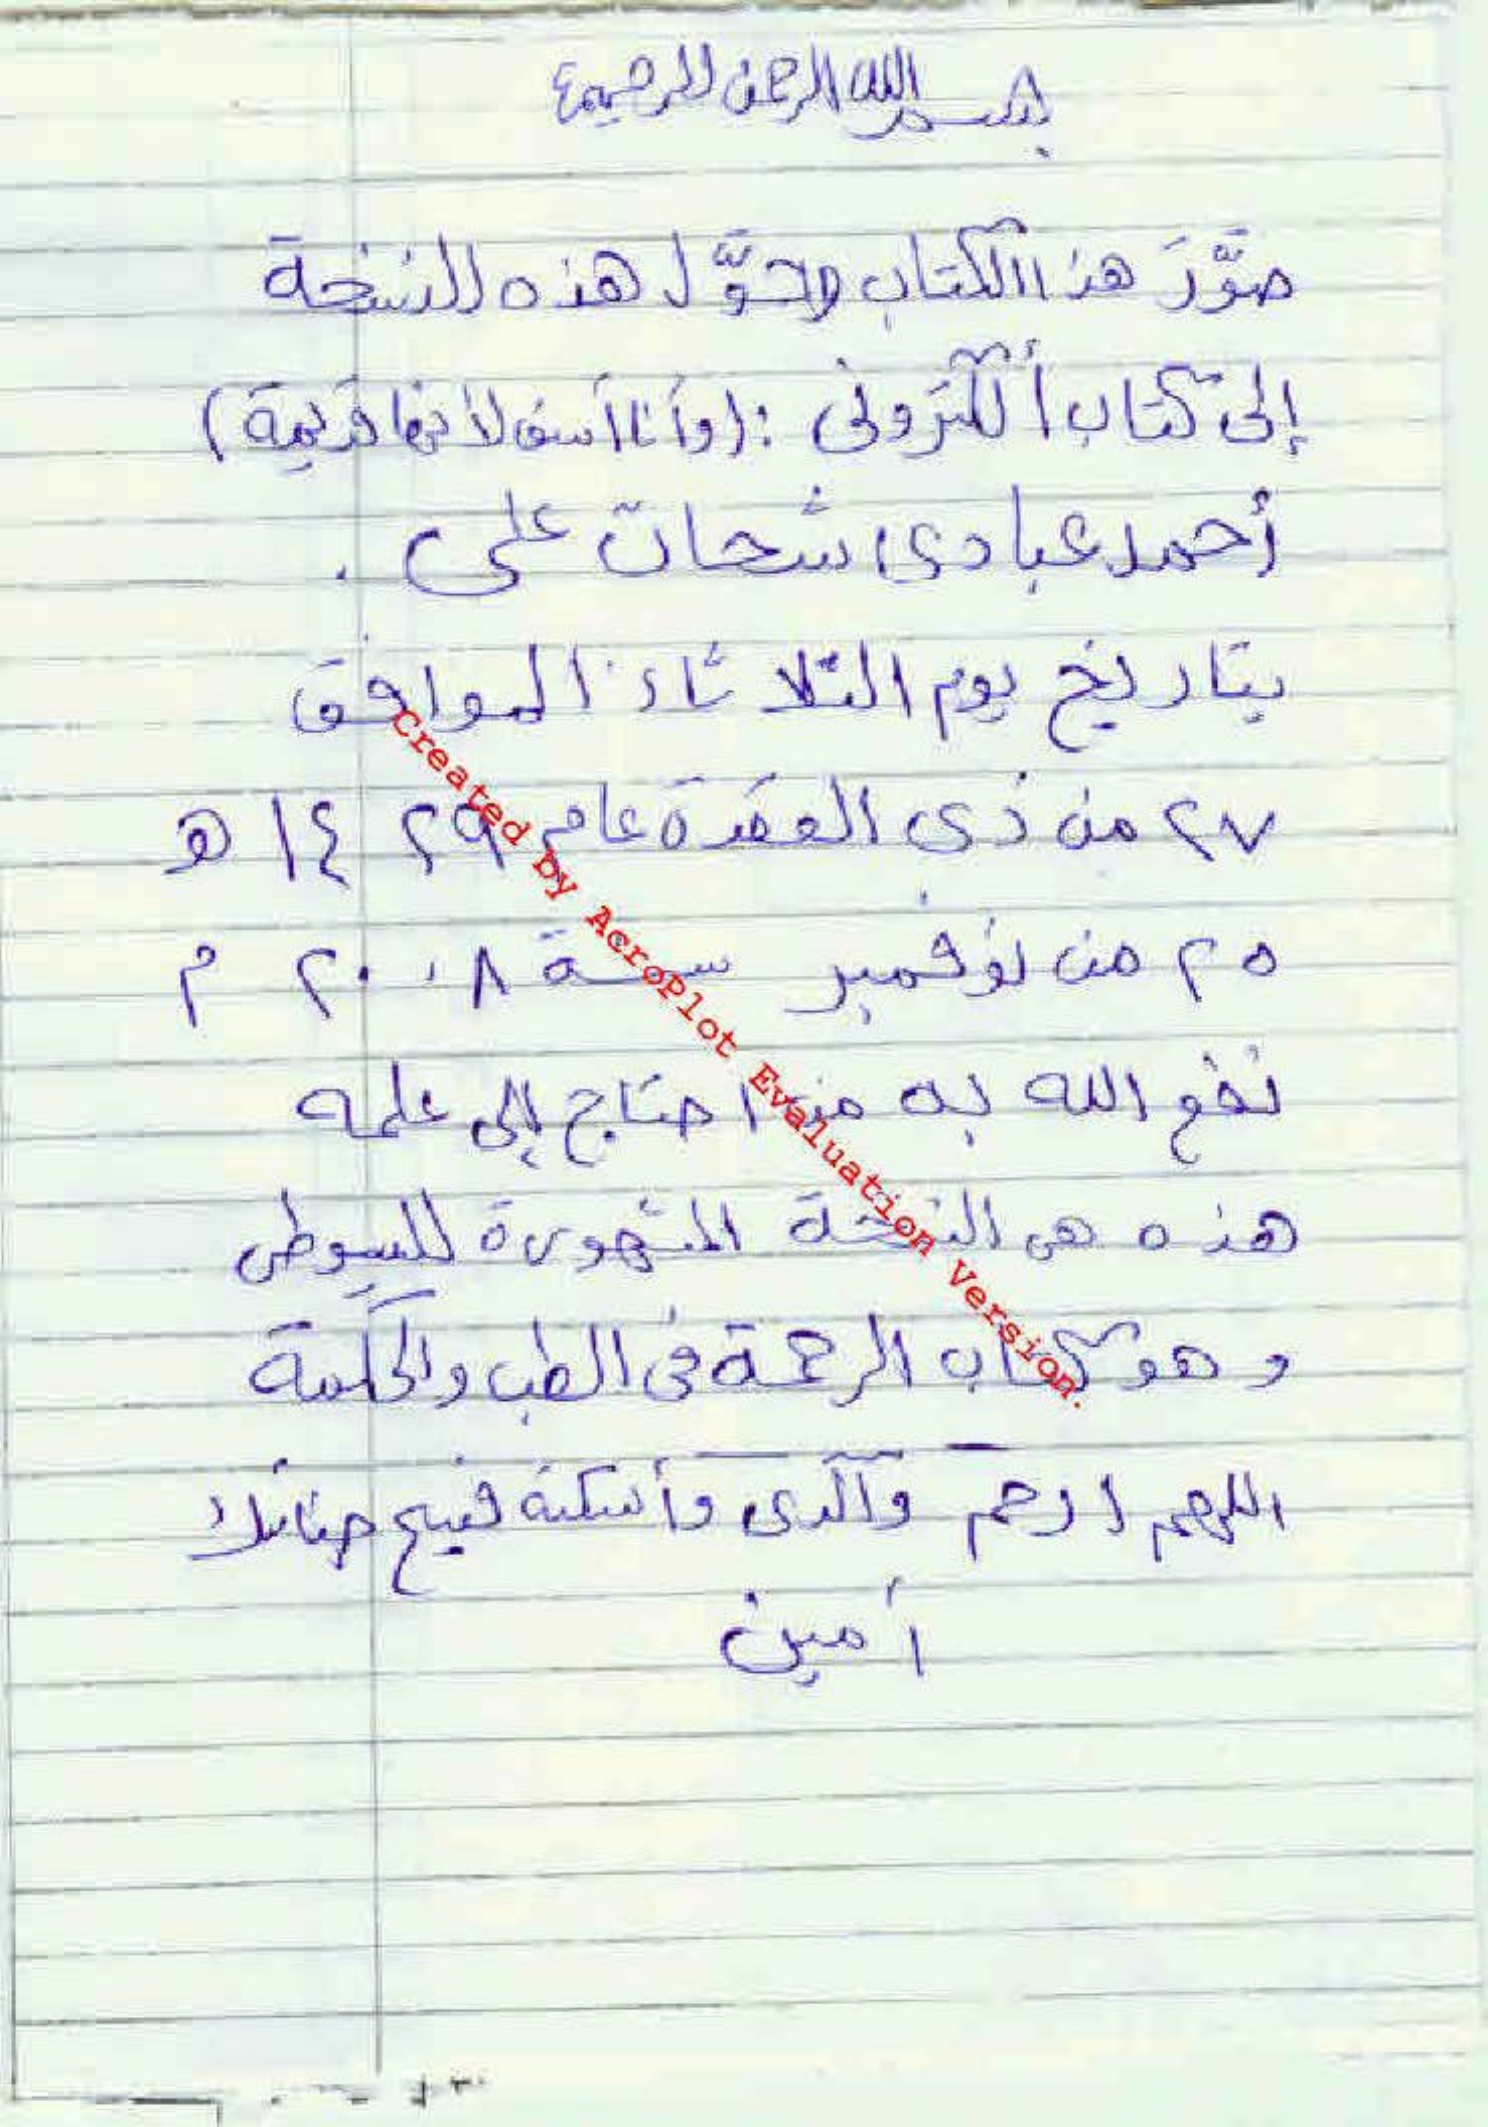 بسم الله الرحمن الرحيم
صَوَّرَ هذا الكتاب وحَوَّل هذه النسخة
إلى كتاب ألكترونى : (وأنا أسف لأنها قديمة)
أحمد عبادى شحات على .
بتاريخ يوم الثلاثاء الموافق
٢٧ من ذى العقدة عام ١٤٢٩ هـ
٢٥ من نوفمبر سنة ٢٠٠٨ م
نفع الله به من احتاج إلى علمه
هذه هى النسخة المشهورة للسيوطى
وهو كتاب الرحمة فى الطب والحكمة
اللهم ارحم والدى وأسكنه فسيح جناتك
أمين
Created by AcroPlot Evaluation Version.